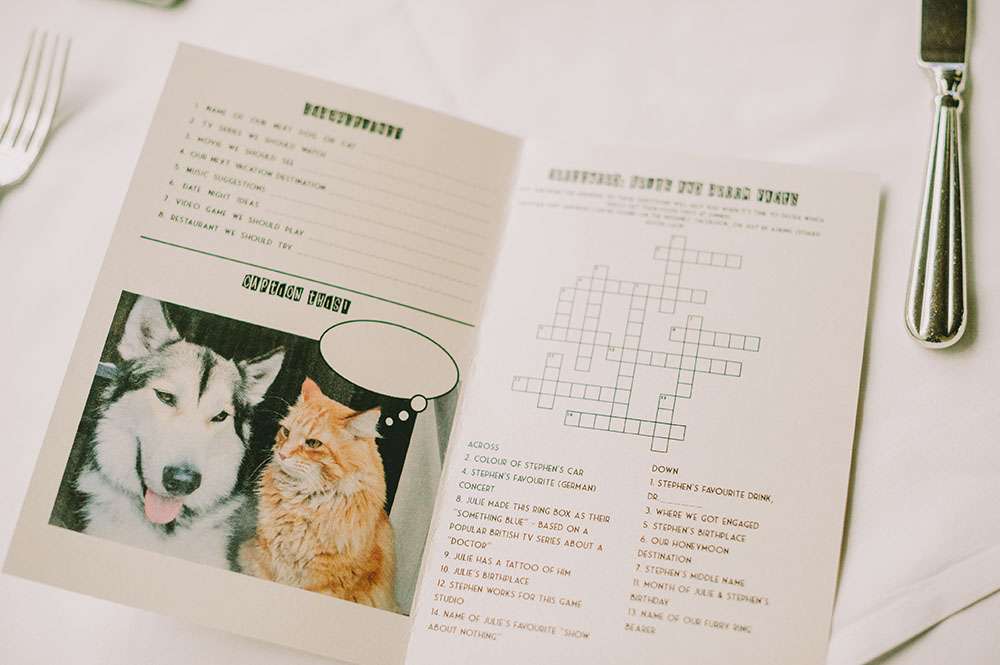 1. NAME OF OUR NEXT DOG OR CAT
2. TV SERIES WE SHOULD WATCH
3. MOVIE WE SHOULD SEE
4. OUR NEXT VACATION DESTINATION
5. MUSIC SUGGESTIONS
6. DATE NIGHT IDEAS
7. VIDEO GAME WE SHOULD PLAY
8. RESTAURANT WE SHOULD TRY
CAPTION THIS!
AND GROOM FACTS
ACROSS
2. COLOUR OF STEPHEN'S CAR
4. STEPHEN'S FAVOURITE (GERMAN)
CONCERT
8. JULIE MADE THIS RING BOX AS THEIR
"SOMETHING BLUE" - BASED ON A
POPULAR BRITISH TV SERIES ABOUT A
"DOCTOR"
9. JULIE HAS A TATTOO OF HIM
10. JULIE'S BIRTHPLACE
12. STEPHEN WORKS FOR THIS GAME
STUDIO
14. NAME OF JULIE'S FAVOURITE "SHOW
ABOUT NOTHING"
DOWN
1. STEPHEN'S FAVOURITE DRINK,
DR.________
3. WHERE WE GOT ENGAGED
5. STEPHEN'S BIRTHPLACE
6. OUR HONEYMOON
DESTINATION
7. STEPHEN'S MIDDLE NAME
11. MONTH OF JULIE & STEPHEN'S
BIRTHDAY
13. NAME OF OUR FURRY RING
BEARER